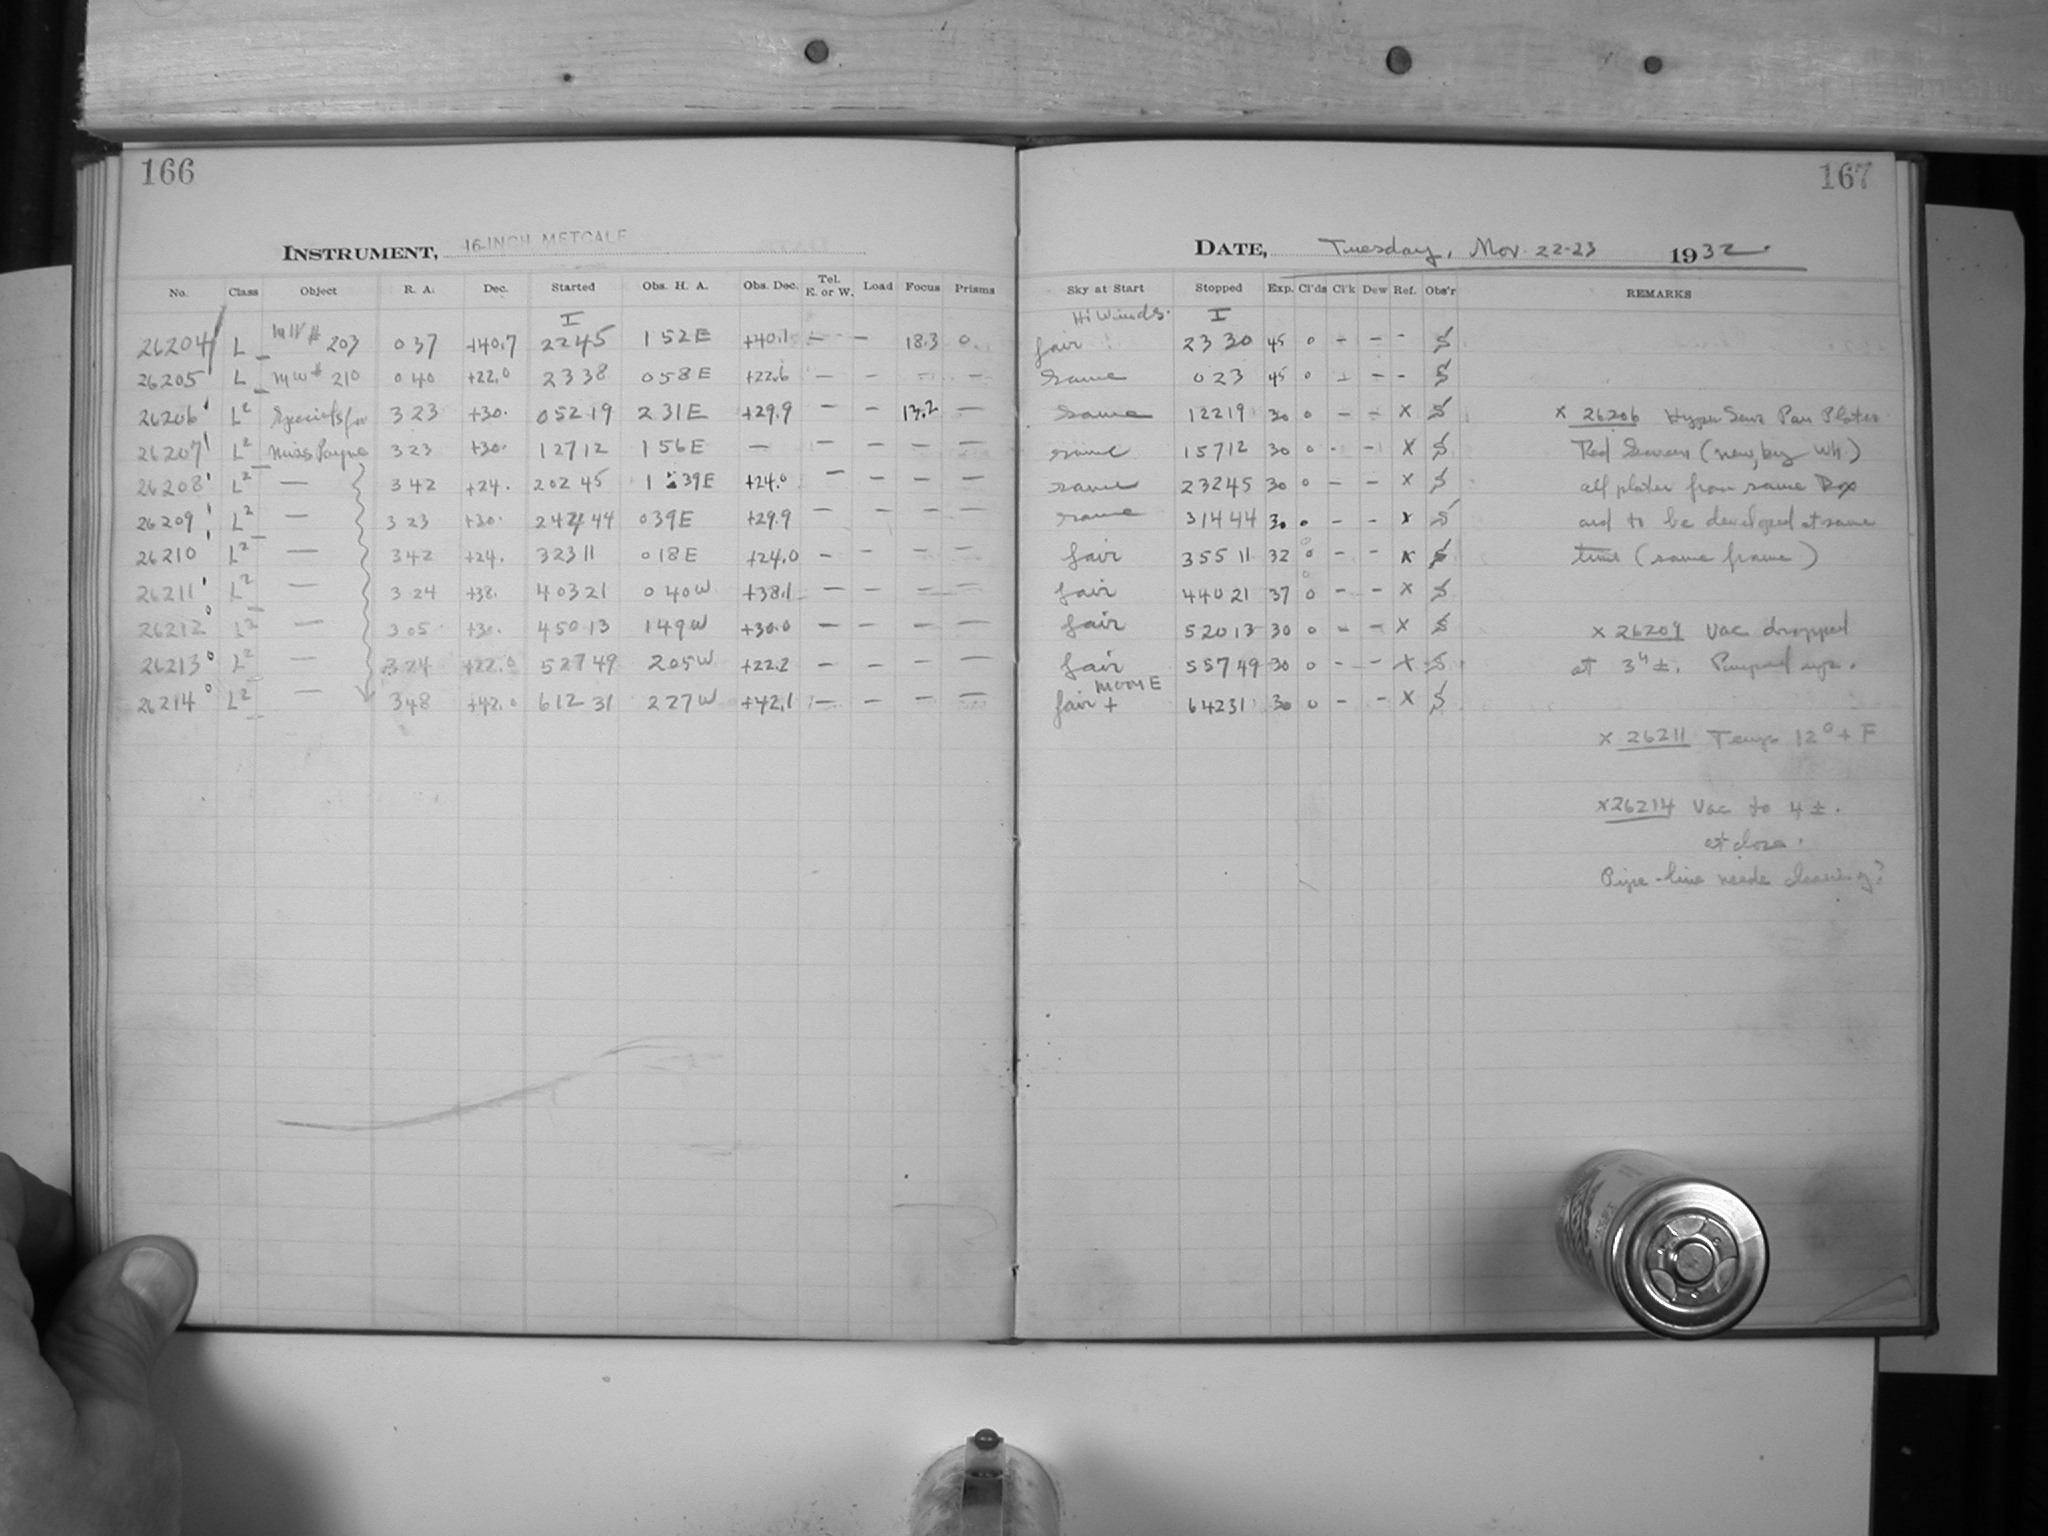 166
INSTRUMENT, 16-INCH METCALF
No. Class Object R. A. Dec. Started Obs. H. A. Obs. Dec. Tel. E. or W. Load Focus Prisms
I
26204 L MW # 203 0 37 +40.7 22 45 1 52 E +40.1 — — 18.3 0
26205 L MW # 210 0 40 +22.0 23 38 0 58 E +22.6 — — — —
26206 L² Specials for 3 23 +30. 0 52 19 2 31 E +29.9 — — 13.2 —
26207 L² Miss Payne 3 23 +30. 1 27 12 1 56 E — — — — —
26208 L² — 3 42 +24. 2 02 45 1 39 E +24.0 — — — —
26209 L² — 3 23 +30. 2 44 44 0 39 E +29.9 — — — —
26210 L² — 3 42 +24. 3 23 11 0 18 E +24.0 — — — —
26211 L² — 3 24 +38. 4 03 21 0 40 W +38.1 — — — —
26212 L² — 3 05 +30. 4 50 13 1 49 W +30.0 — — — —
26213 L² — 3 24 +22.0 5 27 49 2 05 W +22.2 — — — —
26214 L² — 3 48 +42.0 6 12 31 2 27 W +42.1 — — — —
167
DATE, Tuesday, Nov. 22-23 1932.
Sky at Start Stopped Exp. Cl'ds Cl'k Dew Ref. Obs'r REMARKS
Hi Winds. I
fair 23 30 45 0 - - - S
same 0 23 45 0 - - - S
same 1 22 19 30 0 - - X S x 26206 Hyper Sens Pan Plates
same 1 57 12 30 0 - - X S Red Screen (new, by Wh.)
same 2 32 45 30 0 - - X S all plates from same Box
same 3 14 44 30 0 - - X S and to be developed at same
fair 3 55 11 32 0 - - X S time (same frame)
fair 4 40 21 37 0 - - X S
fair 5 20 13 30 0 - - X S x 26209 Vac dropped
fair 5 57 49 30 0 - - X S at 3" ±. Pumped up.
Moon E
fair + 6 42 31 30 0 - - X S
x 26211 Temp 12° + F
x 26214 Vac to 4 ±.
at close.
Pipe-line needs cleaning?